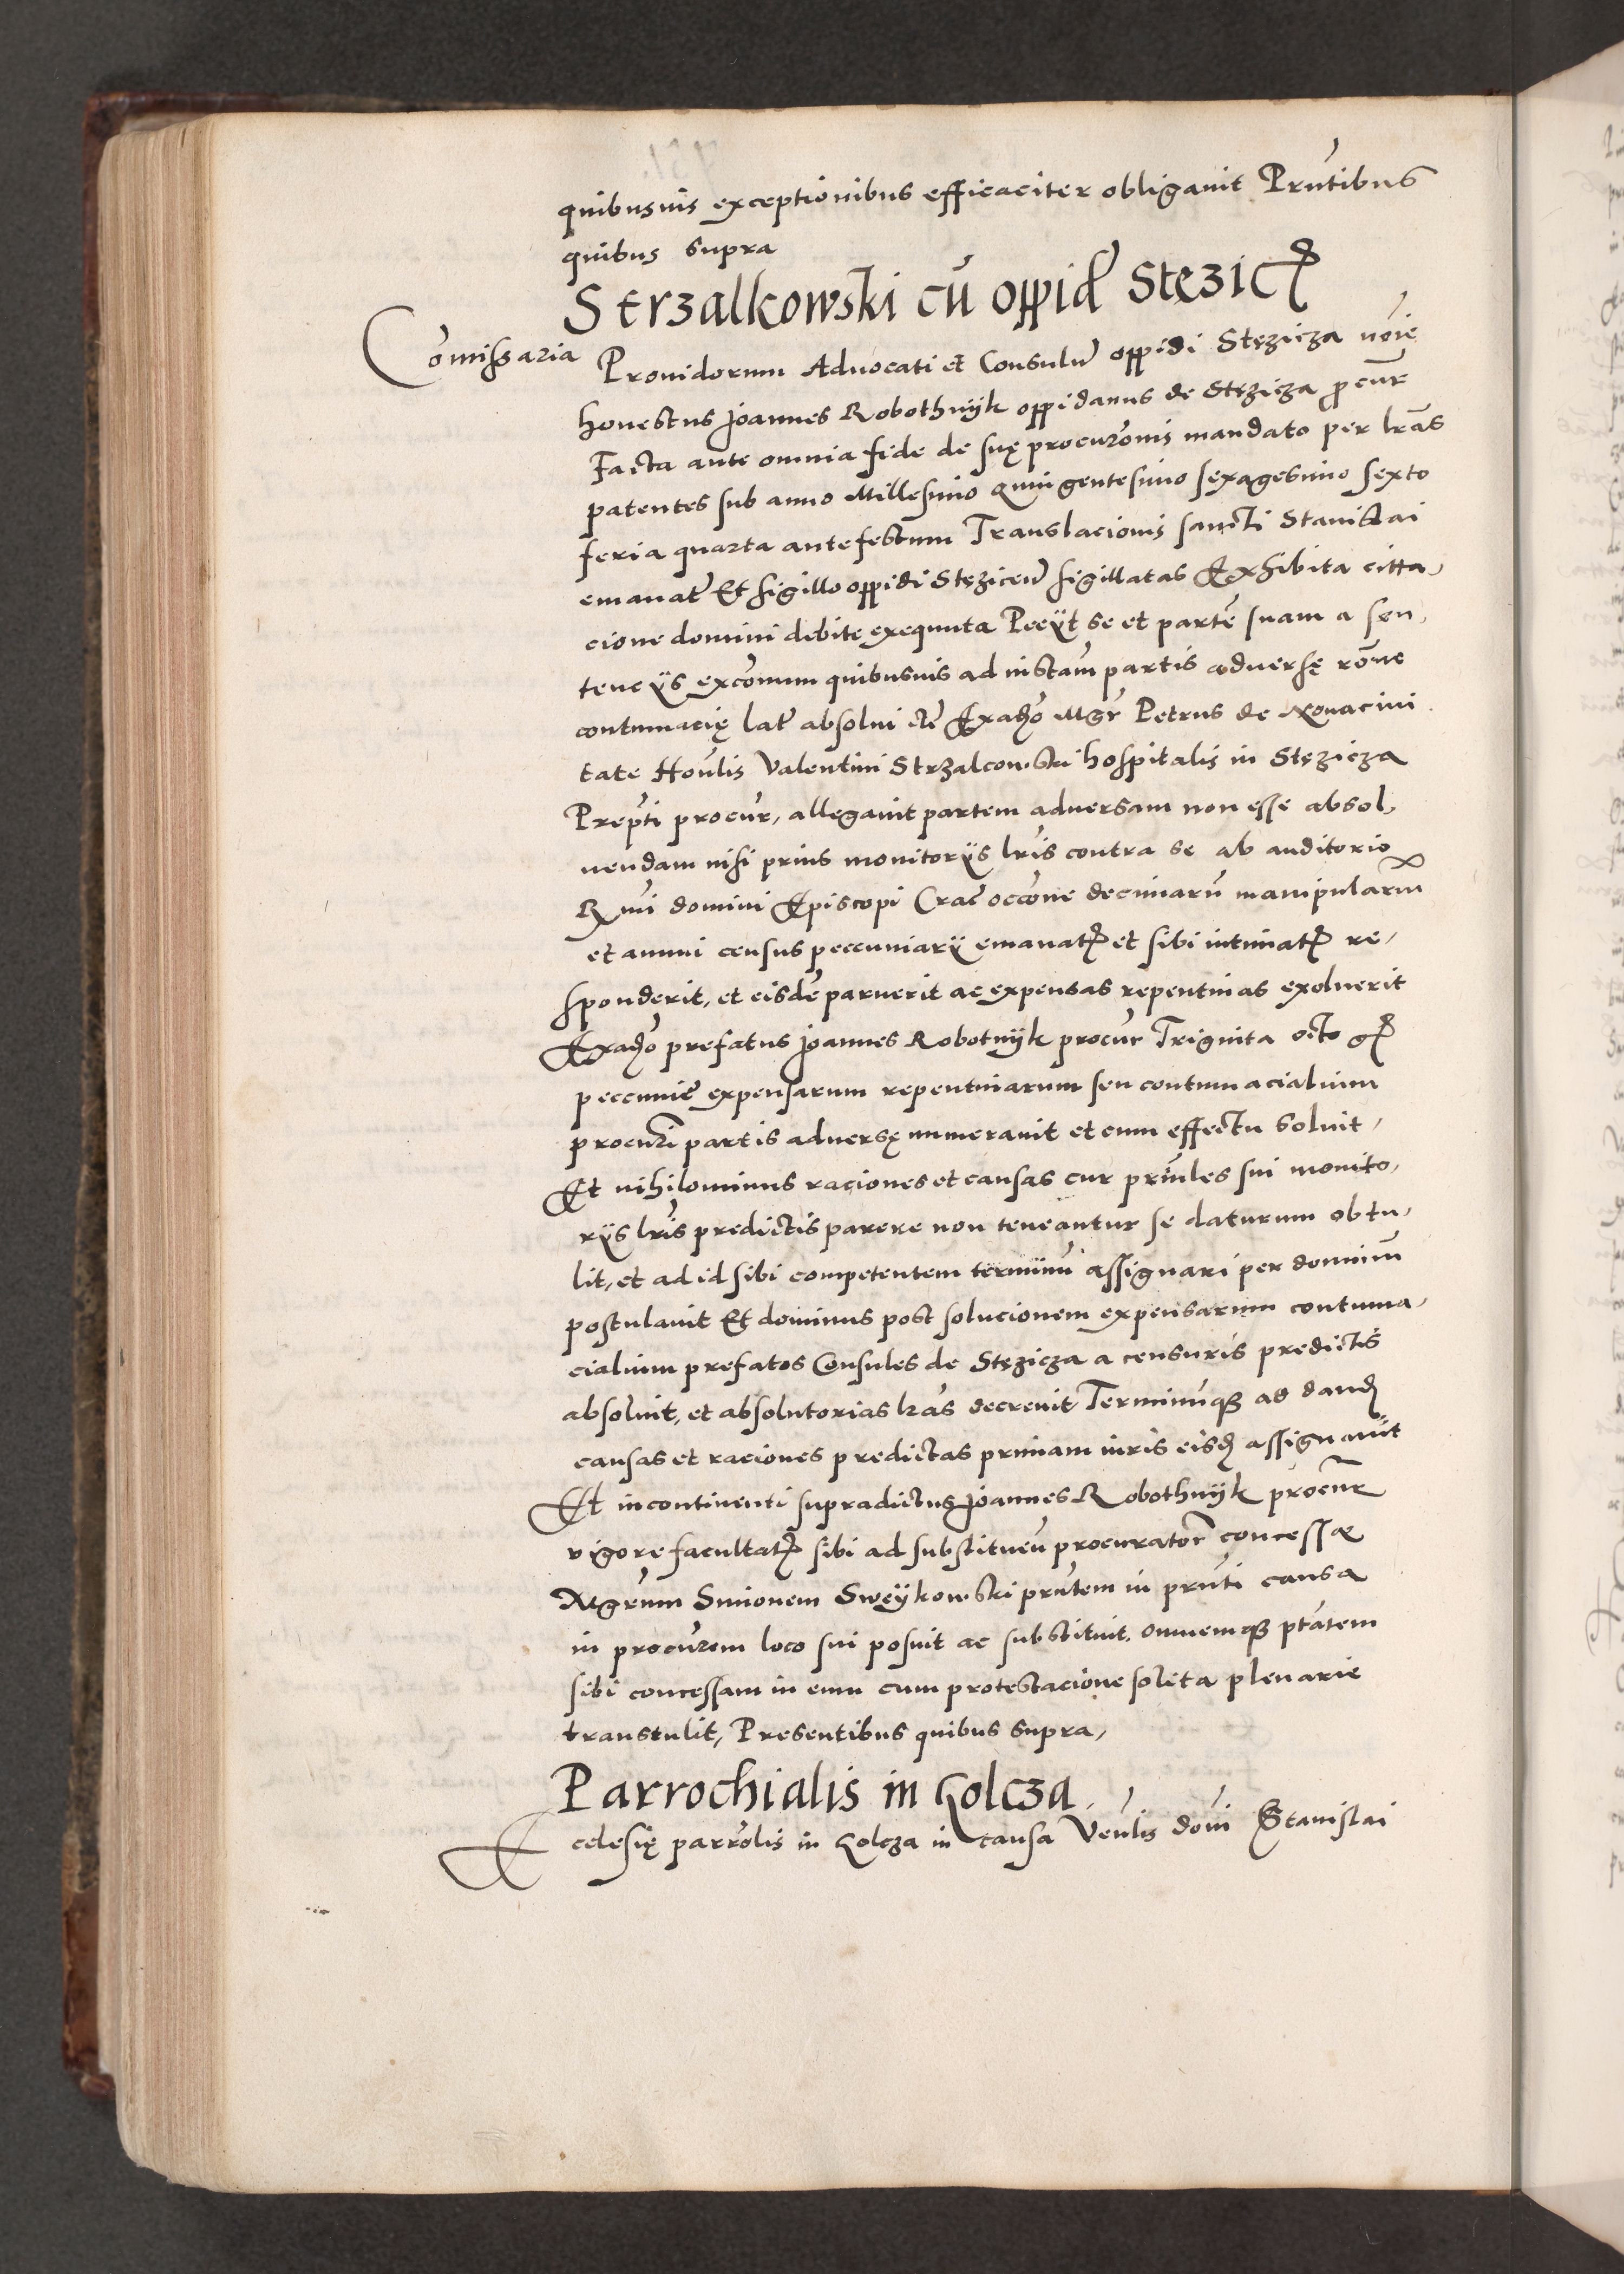 quibusuis exceptionibus efficaciter obligauit Prñtibus
quibus supra
Strzalkowski cũ oppid Stęzic
Comissaria
Prouidorum Aduocati et Consulũ oppidi Stęzicza noie
honestus Joannes Robothnÿk oppidanus de Stęzicza procur
Facta ante omnia fide de suę procurõnis mandato per lrãs
patentes sub anno Millesimo quingentesimo sexagesimo sexto
feria quarta ante festum Translacionis sancti Stanislai
emanat Et sigillo oppidi Stęziceñ sigillatas Exhibita citta,
cione domini debite exequuta Peeÿt se et partẽ suam a sen,
tencÿs excõmum quibusuis ad instam partis aduersę rõne
contumacię lat absolui Exaduo Mgr Petrus de Xouacini
tate Honlis Valentini Strzalcowski hospitalis in Stęzicza
Prepti procur, allegauit partem aduersam non esse absol,
uendam nisi prius monitorÿs lris contra se ab auditorio
Rmi domini Episcopi Crac occõne decimarũ manipularum
et annui census peccuniarÿ emanat et sibi intimat re,
sponderit, et eisdẽ paruerit ac expensas repentinas exoluerit
Exaduo prefatus Joannes Robotnÿk procur Triginta octo gr
peccunie expensarum repentinarum seu contumacialium
procuri partis aduersę numerauit et cum effectu soluit,
Et nihilominus raciones et causas cur prinles sui monito,
rÿs lris predictis parere non teneantur se daturum obtu,
lit, et ad id sibi competentem terminũ assignari per dominũ
postulauit Et dominus post solucionem expensarum contuma,
cialium prefatos Consules de Stęzicza a censuris predictis
absoluit, et absolutorias lrãs decreuit Terminũq ad dand
causas et raciones predictas primam iuris eisd assignauit
Et incontinenti supradictus Joannes Robothnÿk procur
vigore facultat sibi ad substitueñ procurator concessæ
Mgrum Simonem Sweÿkowski prñtem in prñti causa
in procurem loco sui posuit ac substituit, omnemq ptatem
sibi concessam in eum cum protestacione solita plenarie
transtulit, Presentibus quibus supra,
Parrochialis in Golcza
Ecclesię parrolis in Golcza in causa Venlis doni Stanislai